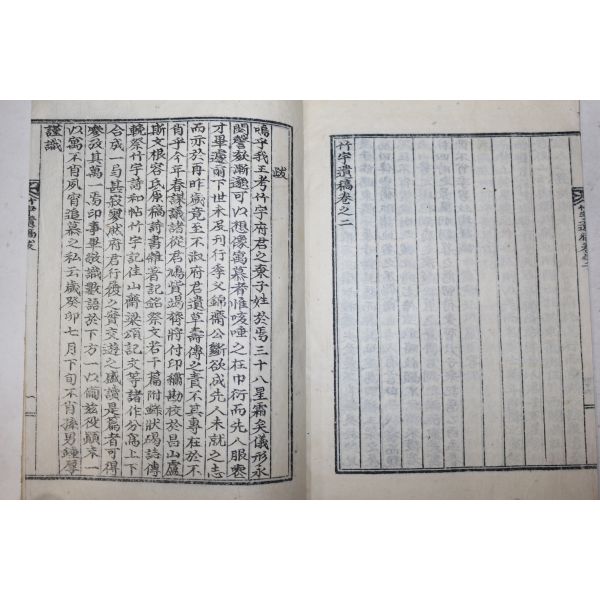 竹宇遺稿卷之二
跋
嗚乎我王考竹宇府君之棄子姓於焉三十八星霜矣儀形永
閟謦欬漸邈可以想像寓慕者惟咳唾之在巾衍而先人服喪
才畢遽爾下世未及刊行季父錦齋公斷欲成先人未就之志
而亦於再昨歲竟至不淑府君遺草壽傳之責不其專在於不
肖乎今年春謀議諸從君鳩貲竭精將付印役勘校於昌山盧
斯文根容氏原稿詩書雜著記銘祭文若干篇附以狀碣誌傳
輓祭竹宇詩和帖竹宇記佳山齋梁頌記文等諸作分爲上下
合成一局甚寂寥然府君行德之實交遊之盛讀是篇者可得
參攷其萬一焉印事畢敬識數語於下方一以備玆役顚末一
以寓不肖夙宵追慕之私云歲癸卯七月下旬不肖孫男鍾厚
謹識